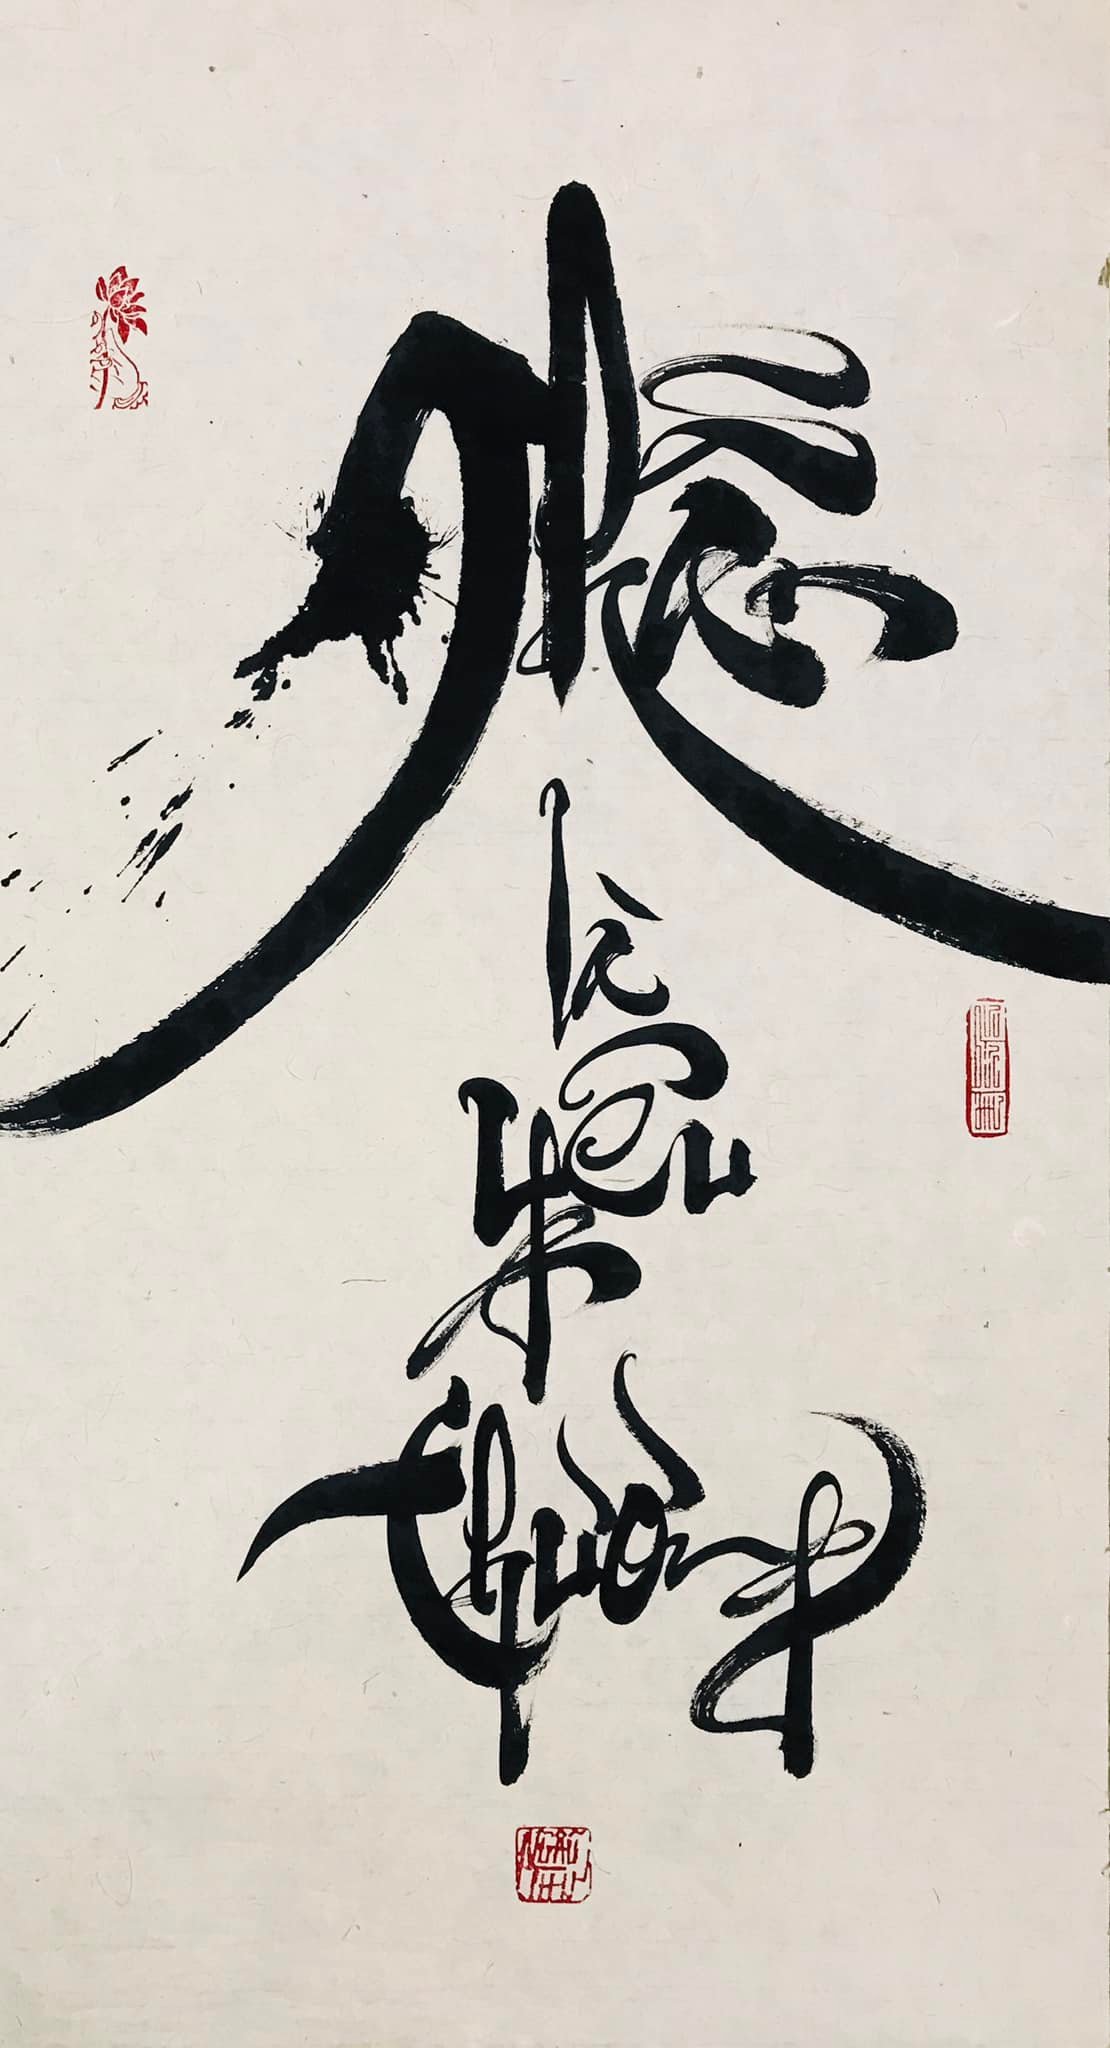 Nhẫn
là
yêu
thương